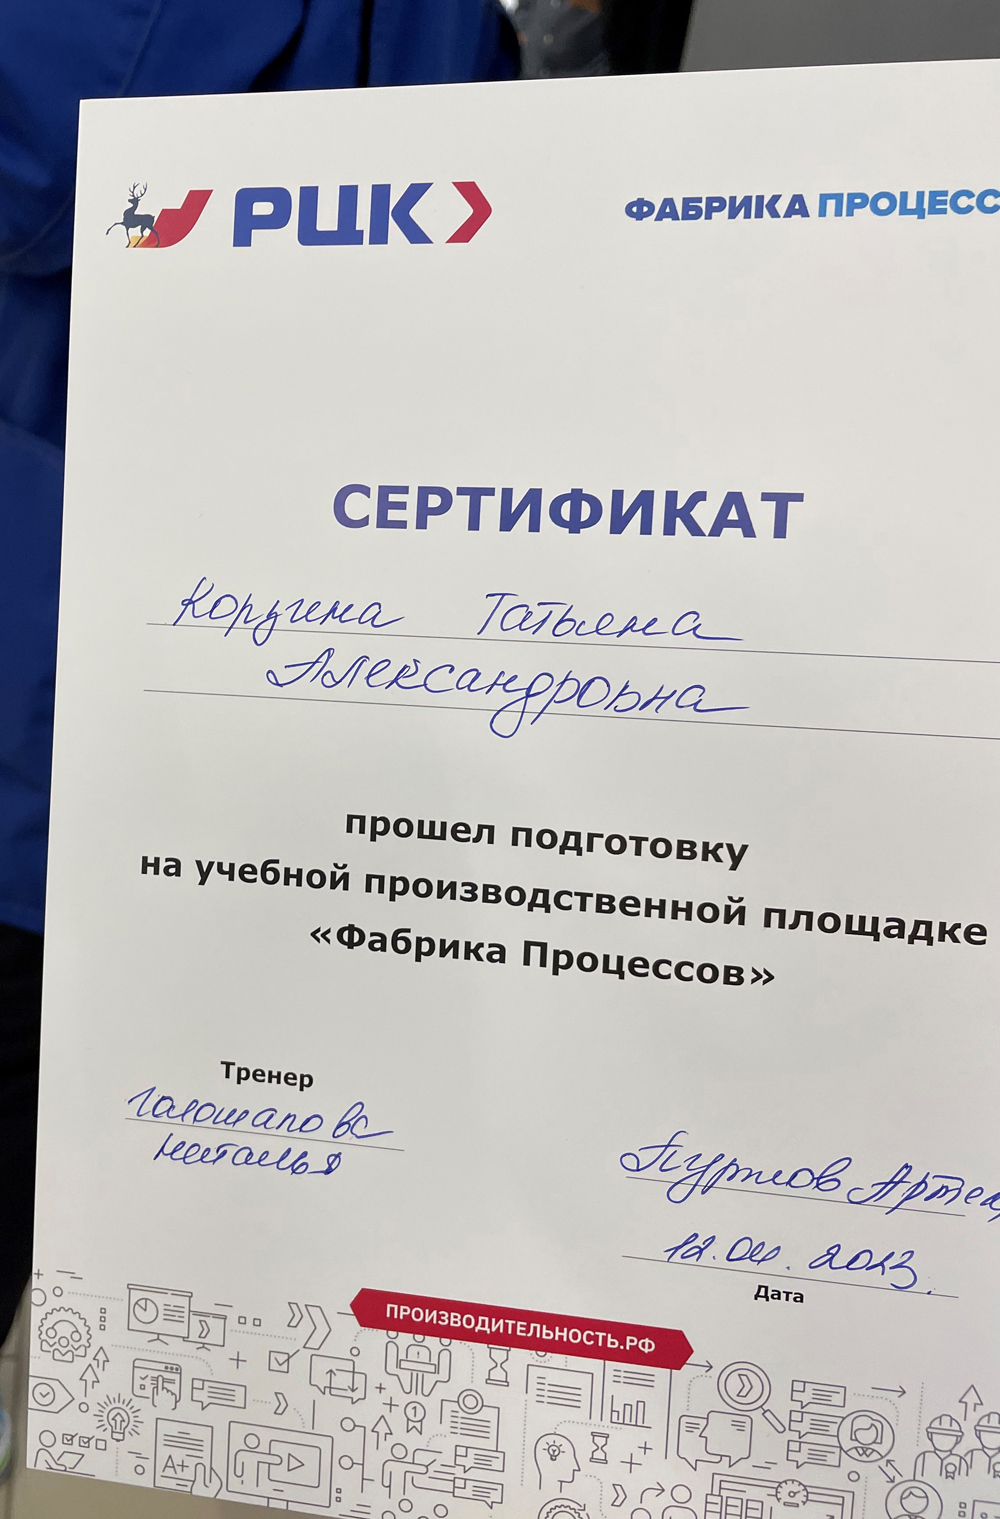 РЦК
ФАБРИКА ПРОЦЕСС
СЕРТИФИКАТ
Коругина Татьяна
Александровна
прошел подготовку
на учебной производственной площадке
«Фабрика Процессов»
Тренер
Галошапова
Наталья
Артем
12.04.2023.
Дата
ПРОИЗВОДИТЕЛЬНОСТЬ.РФ
A+